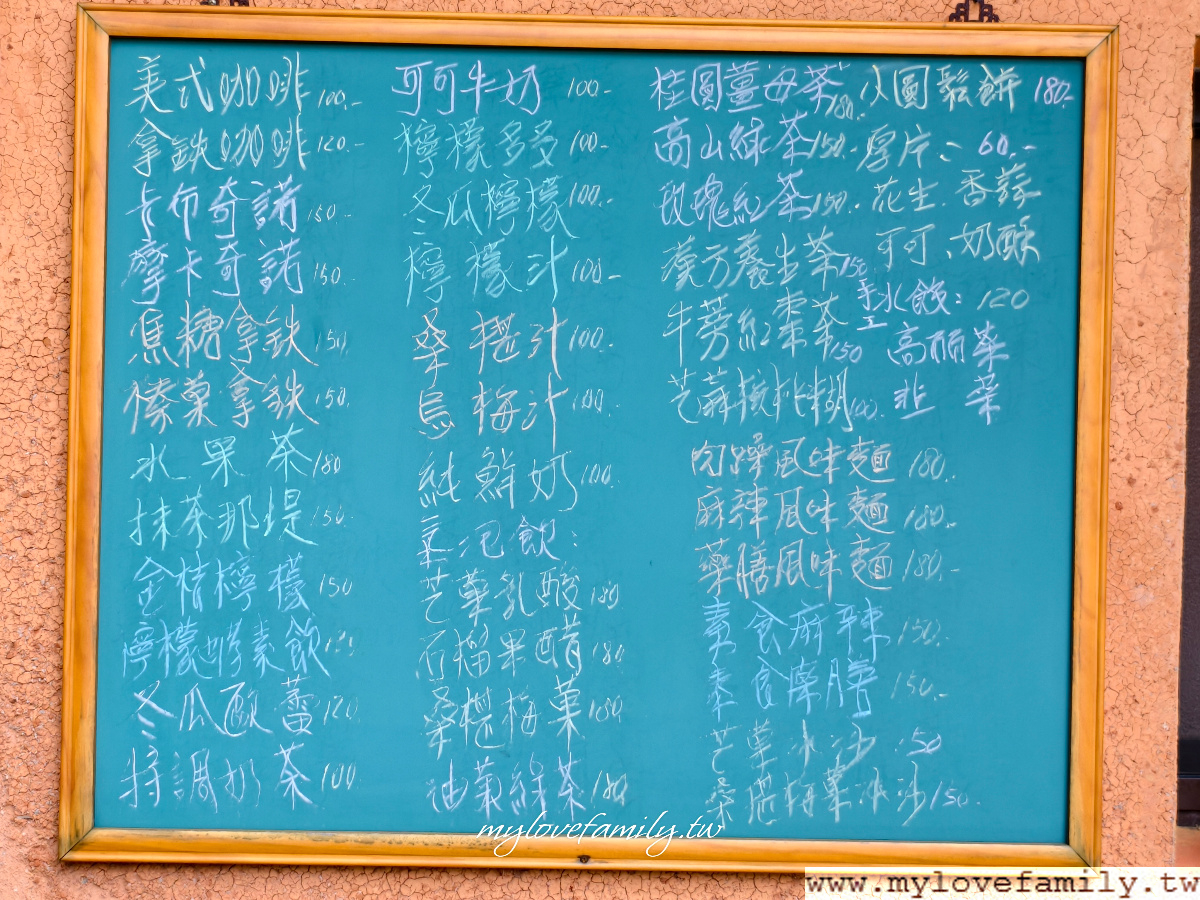 美式咖啡 100.-
拿鉄咖啡 120.-
卡布奇諾 150.-
摩卡奇諾 150.
焦糖拿鉄 150.
榛菓拿鉄 150.
水果茶 180
抹茶那堤 150.
金桔檸檬 150
檸檬酵素飲
冬瓜歐蕾 120.
特調奶茶 100
可可牛奶 100.-
檸檬多多 100.-
冬瓜檸檬 100.-
檸檬汁 100.-
桑椹汁 100.-
烏梅汁 100.-
純鮮奶 100.
氣泡飲：
芒菓乳酸 180
石榴果醋 180
桑椹梅菓 180
油菊綠茶 180
桂圓薑母茶 180.
高山綠茶 150.
玫瑰紅茶 150.
漢方養生茶 150
牛蒡紅棗茶 150
芝蔴核桃糊 100.
小圓鬆餅 180.-
厚片：60.-
花生.香蒜
可可、奶酥
手工水餃：120
高麗菜
韭菜
肉燥風味麵 180.
麻辣風味麵 180.-
藥膳風味麵 180.-
素食麻辣 150.
素食藥膳 150.-
芒菓冰沙 150
桑椹梅菓冰沙 150.
mylovefamily.tw
www.mylovefamily.tw